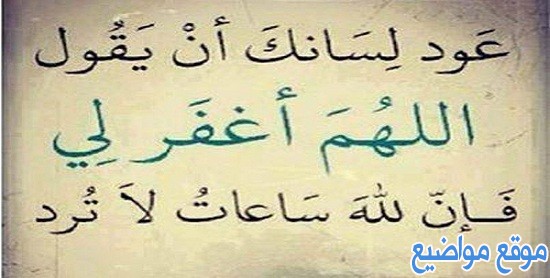 عَود لِسَانكَ أنْ يَقُول
اللهُمَ أغفَر لِي
فَإنّ للهَ سَاعَاتُ لاَ تُرد
موقع مواضيع